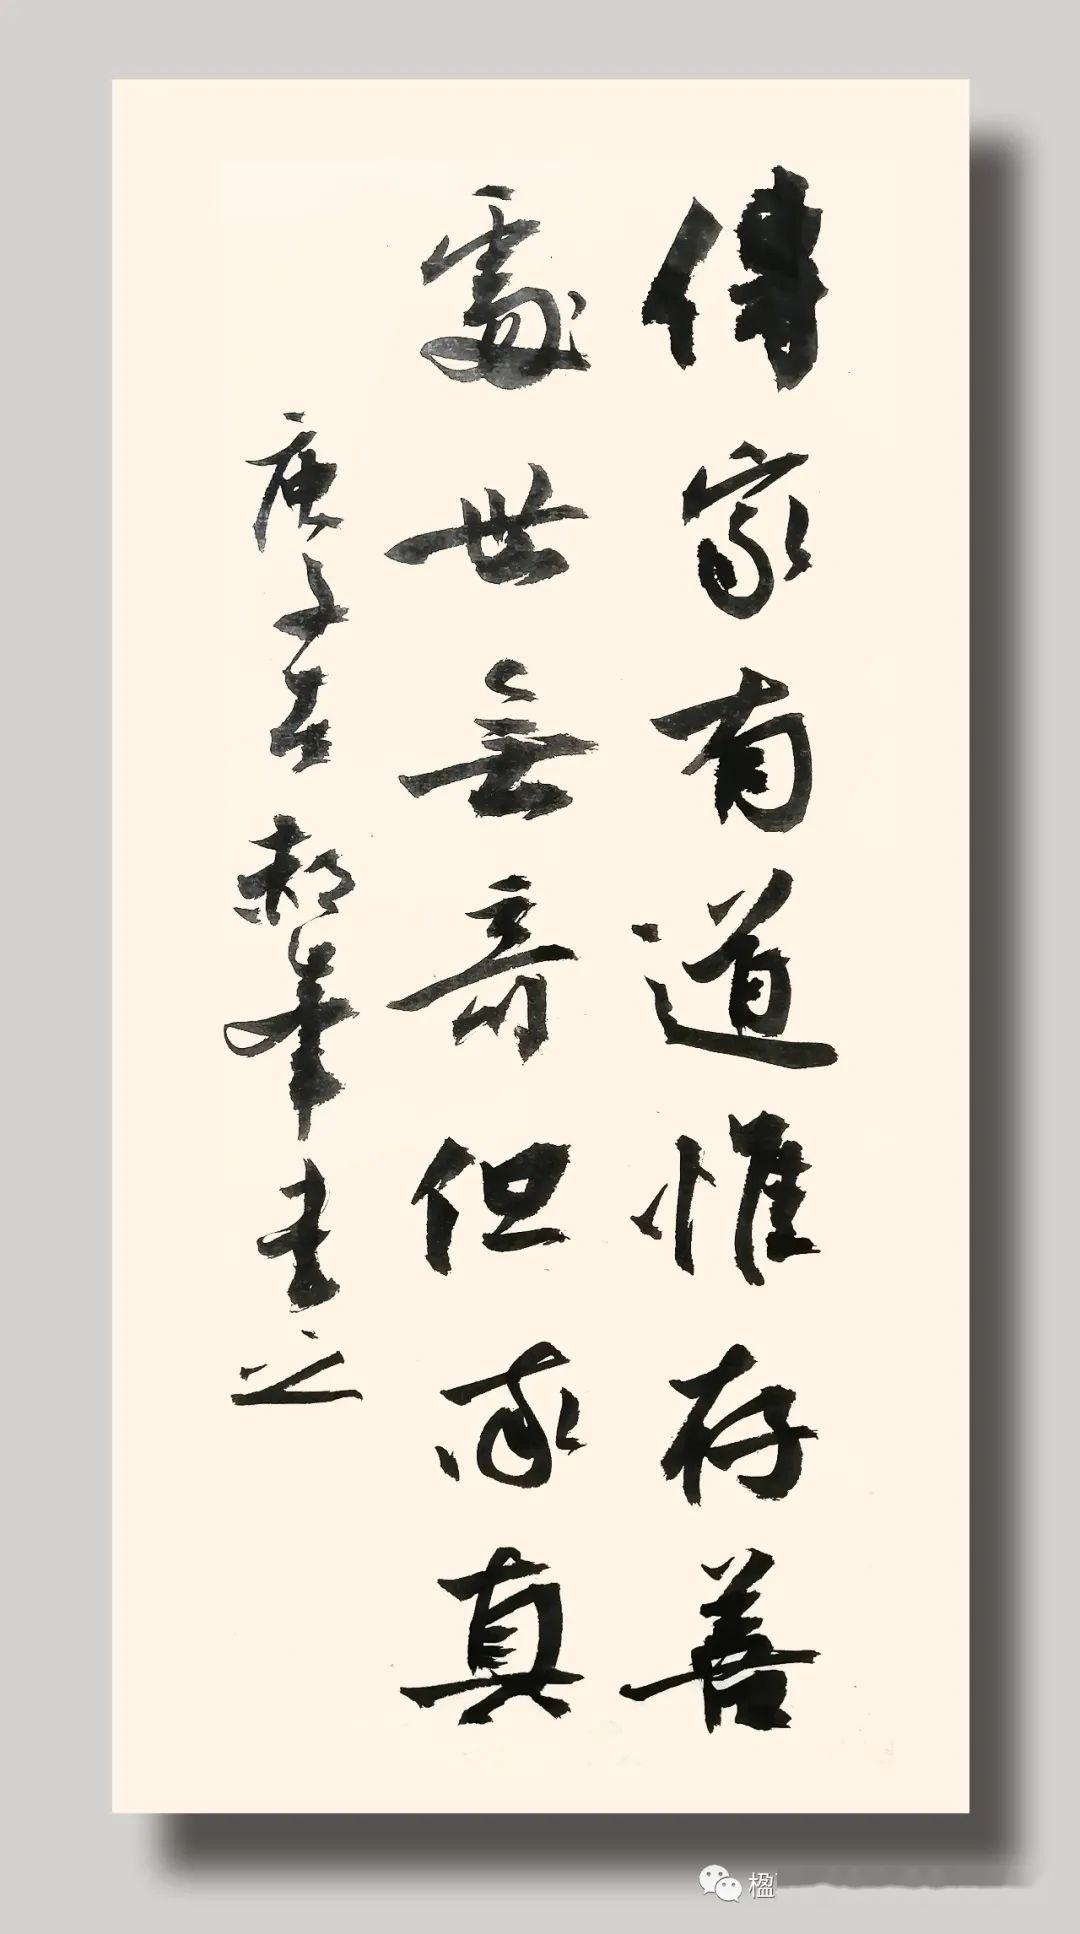 傳家有道惟存善
處世無奇但求真
庚子春郝峯書之
楹